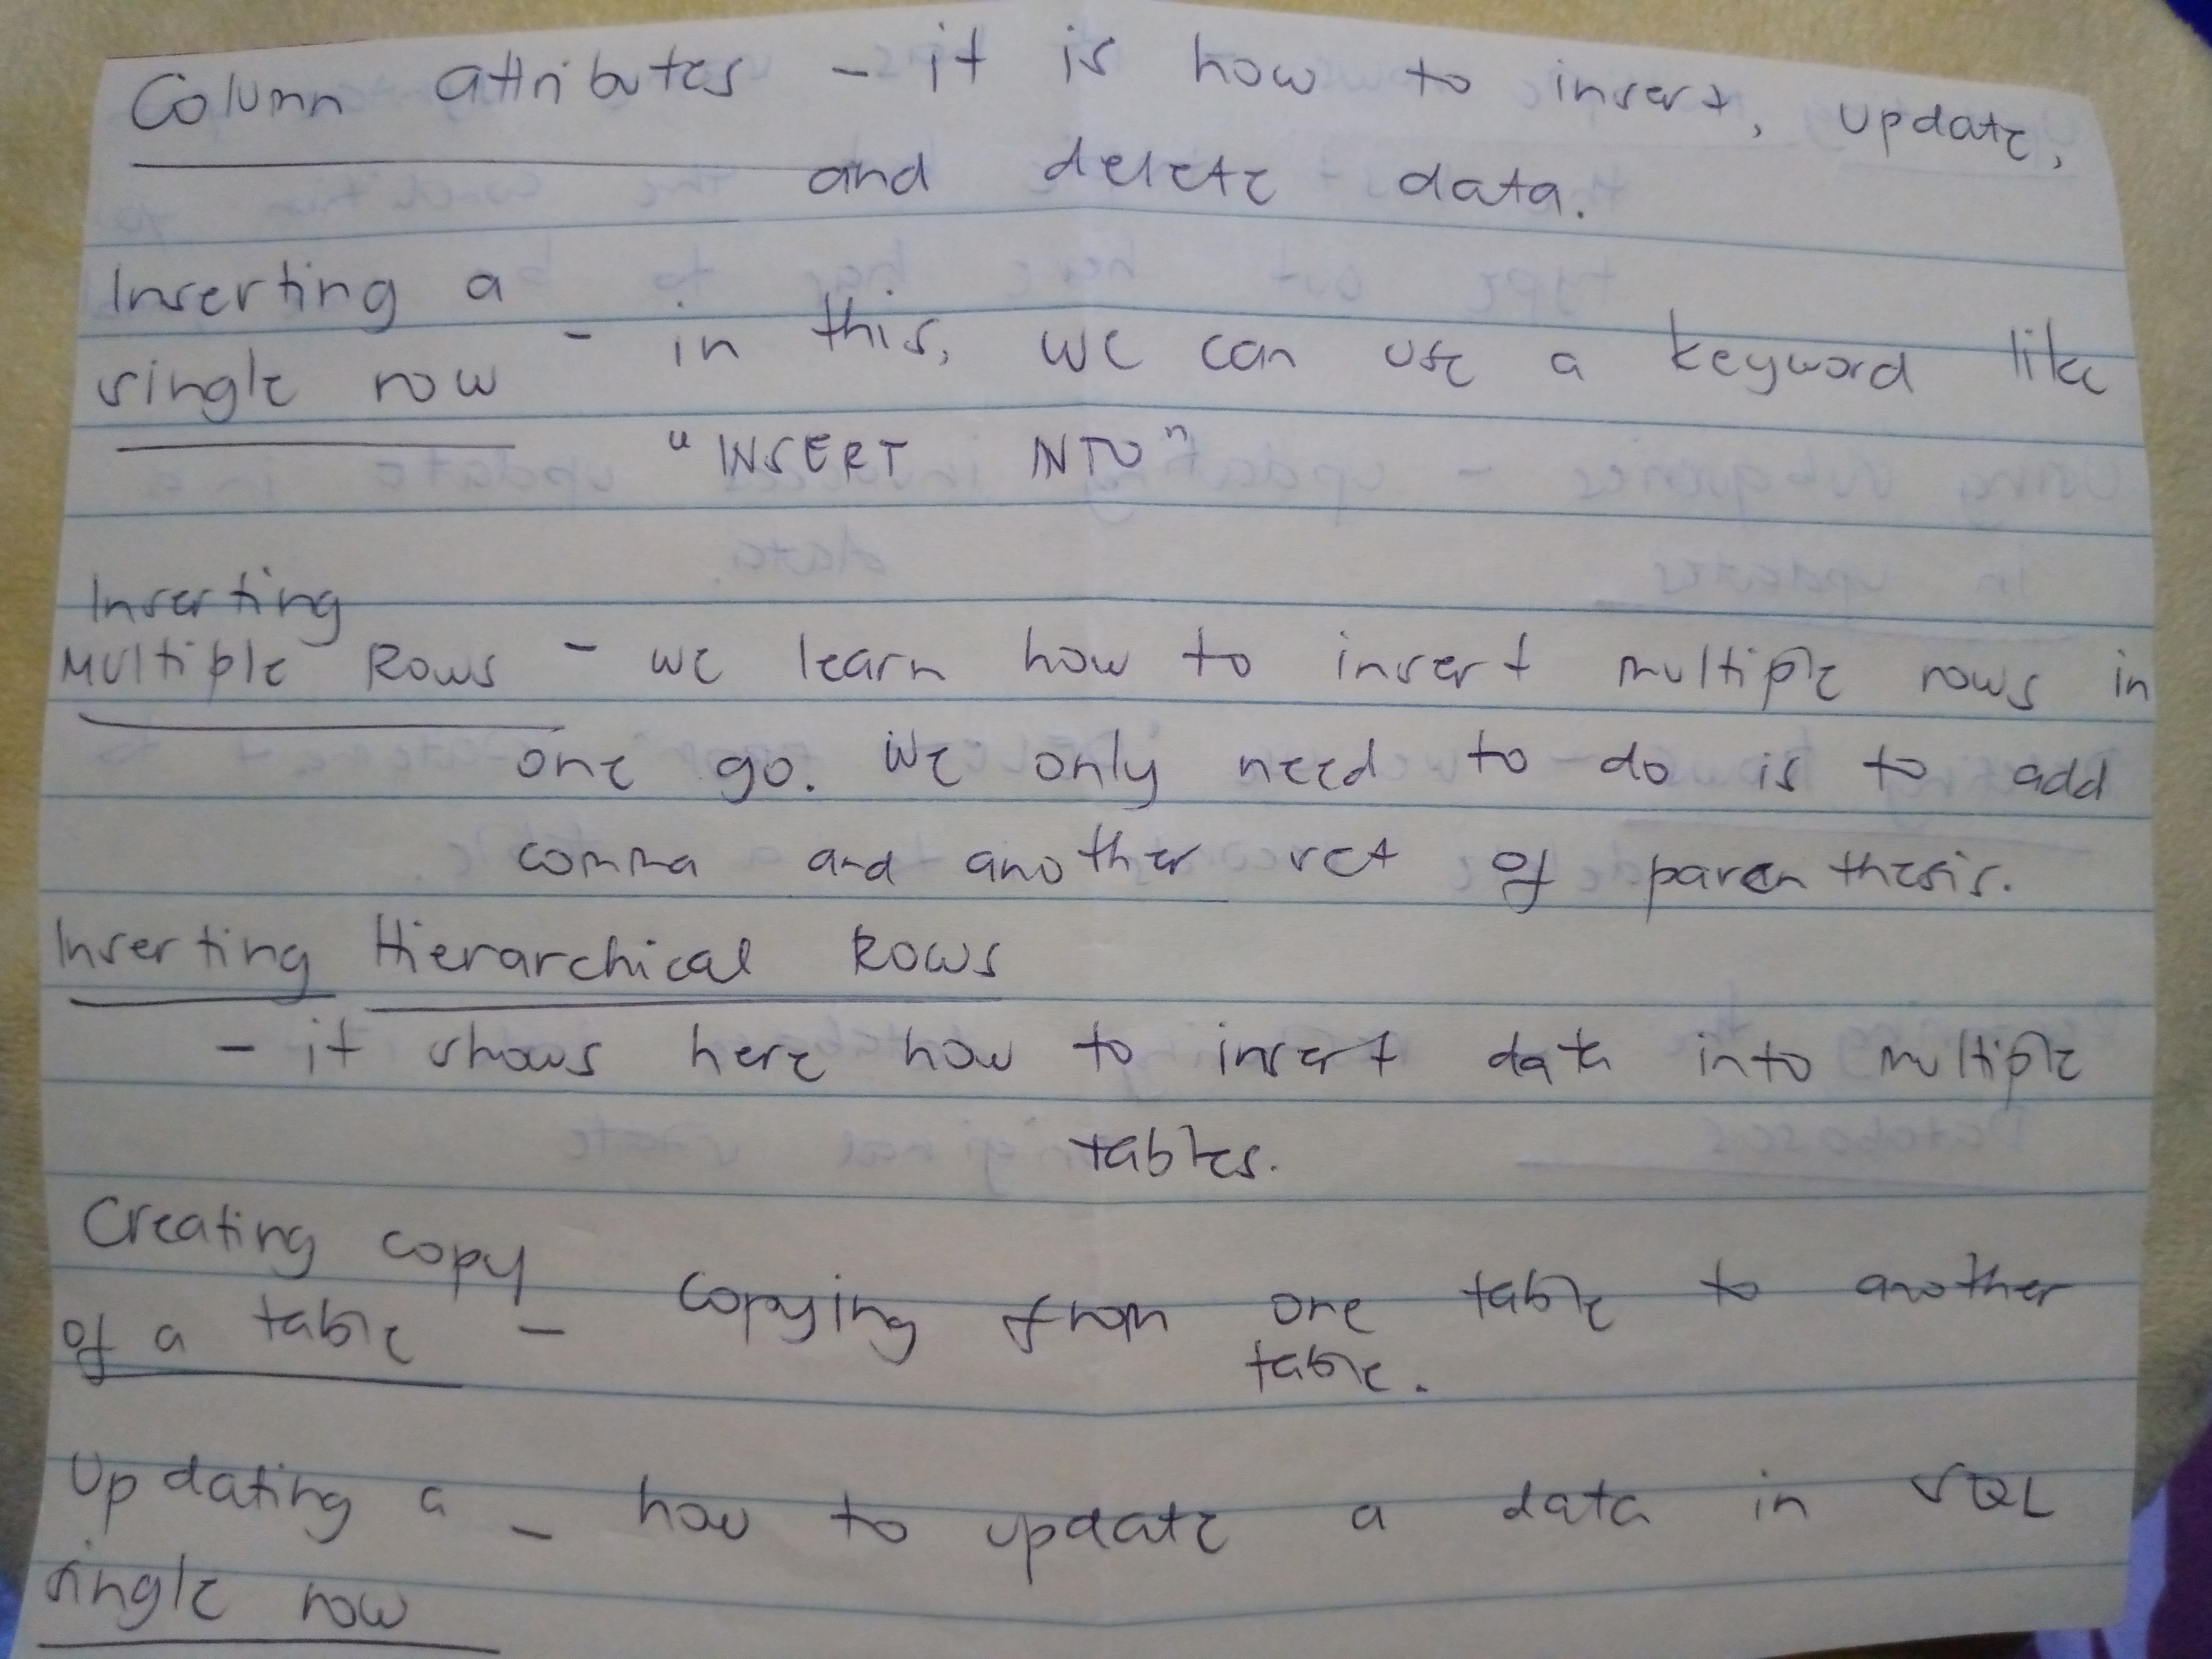 Column attributes - it is how to insert, update,
and delete data.
Inserting a
single row - in this, we can use a keyword like
"INSERT INTO"
Inserting
Multiple Rows - we learn how to insert multiple rows in
one go. We only need to do is to add
comma and another set of parenthesis.
Inserting Hierarchical Rows
- it shows here how to insert data into multiple
tables.
Creating copy
of a table - copying from one table to another
table.
Updating a - how to update a data in SQL
single row